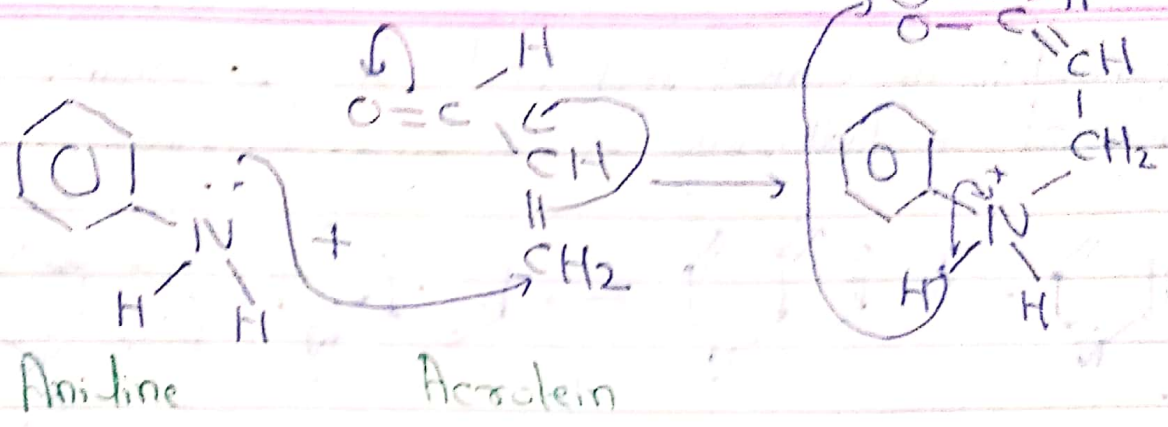 H
O = C
CH
CH2
N
H H
+
O - C
CH
CH2
N +
H H
Aniline Acrolein